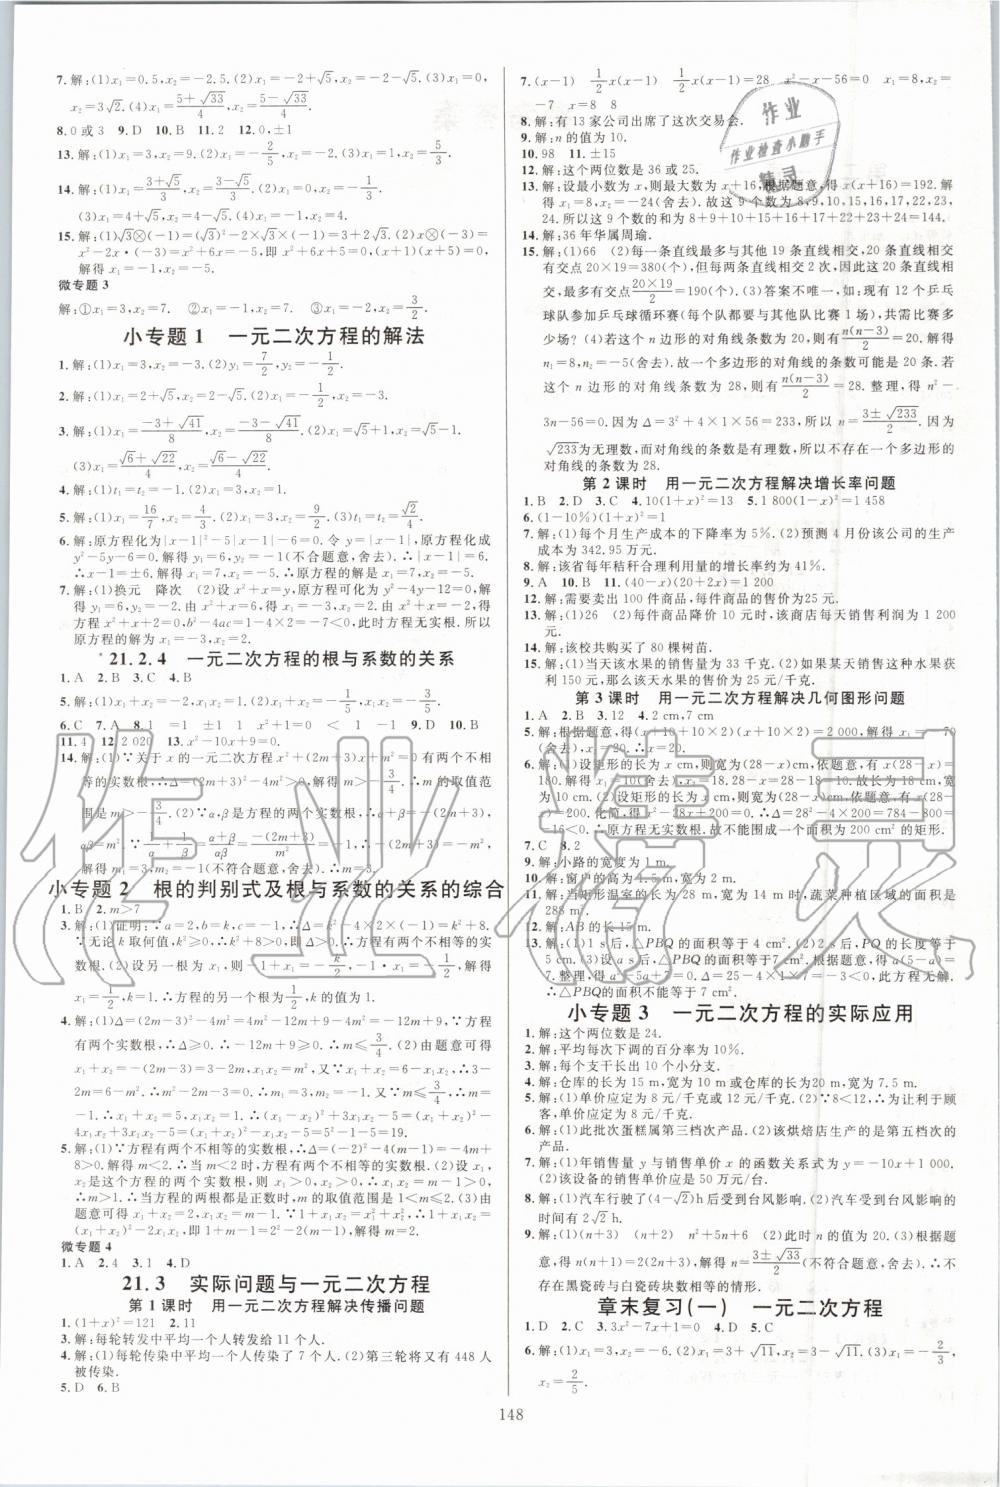 7.解:(1)x₁=0.5,x₂=-2.5.(2)x₁=-2+√5,x₂=-2-√5.(3)x₁=0,
x₂=3√2.(4)x₁=(5+√33)/4,x₂=(5-√33)/4.
8.0或3 9.D 10.B 11.2 12.0,±1
14.解:(1)x₁=(3+√5)/2,x₂=(3-√5)/2.
(3)x₁=4+√21,x₂=4-√21.
15.解:(1)√3⊗(-1)=(√3)²-2×√3×(-1)=3+2√3.(2)x⊗(-3)=
解得x₁=-1,x₂=-5.
微专题3
解:①x₁=3,x₂=7. ②x₁=-1,x₂=7. ③x₁=-2,x₂=3/2.
小专题1 一元二次方程的解法
1.解:(1)x₁=-1,x₂=-3.(2)y₁=7/2,y₂=-1/2.
2.解:(1)x₁=2+√5,x₂=2-√5.(2)x₁=1/3,x₂=-1.
3.解:(1)x₁=(-3+√41)/8,x₂=(-3-√41)/8.(2)x₁=√5+1,x₂=√5-1.
(3)x₁=(√6+√22)/4,x₂=(√6-√22)/4.
4.解:(1)t₁=t₂=-1.(2)x₁=9,x₂=1.
6.解:原方程化为|x-1|²-5|x-1|-6=0.令y=|x-1|,原方程化成
y²-5y-6=0.解得y₁=6,y₂=-1(不合题意,舍去).∴|x-1|=6.
∴x-1=±6.解得x₁=7,x₂=-5.∴原方程的解是x₁=7,x₂=-5.
7.解:(1)换元 降次 (2)设x²+x=y,原方程可化为y²-4y-12=0,解得
y₁=6,y₂=-2.由x²+x=6,得x₁=-3,x₂=2.由x²+x=-2,得
方程x²+x+2=0,b²-4ac=1-4×2=-7<0,此时方程无实根.所以
原方程的解为x₁=-3,x₂=2.
21.2.4 一元二次方程的根与系数的关系
1.A 2.B 3.C 4.B
6.C 7.A 8.1 = ±1 1 x²+1=0 < 1 -1 9.D 10.B
11.4 12.2 020 13.x²-10x+9=0.
14.解:(1)∵关于x的一元二次方程x²+(2m+3)x+m²=0有两个不相
等的实数根,∴Δ=(2m+3)²-4m²>0,解得m>-3/4.∴m的取值范
围是m>-3/4.(2)∵α,β是方程的两个实数根,∴α+β=-(2m+3),
小专题2 根的判别式及根与系数的关系的综合
1.B 2.m>7
3.解:(1)证明:∵a=2,b=k,c=-1,∴Δ=k²-4×2×(-1)=k²+8.
∵无论k取何值,k²≥0,∴k²+8>0,即Δ>0.∴方程有两个不相等的实
数根.(2)设另一根为x₁,则-1+x₁=-k/2,-1·x₁=-1/2,解得
x₁=1/2,k=1.∴方程的另一个根为1/2,k的值为1.
4.解:(1)Δ=(2m-3)²-4m²=4m²-12m+9-4m²=-12m+9,∵方程
有两个实数根,∴Δ≥0.∴-12m+9≥0.∴m≤3/4.(2)由题意可得
x₁+x₂=-(2m-3)=3-2m,x₁x₂=m²,又∵x₁+x₂=x₁x₂,∴3-
2m=m².∴m²+2m-3=0.∴m₁=-3,m₂=1.又∵m≤3/4,∴m=
5.解:(1)∵方程有两个不相等的实数根,∴Δ=(-2)²-4(m-1)=-4m+
8>0.解得m<2.∴m的取值范围是m<2.(2)设x₁,
x₂是这个方程的两个根,则x₁>0,x₂>0.∴x₁x₂=m-1>0.
∴m>1.∴当方程的两根都是正数时,m的取值范围是1<m<2.(3)由
微专题4
1.A 2.4 3.1 4.D
21.3 实际问题与一元二次方程
第1课时 用一元二次方程解决传播问题
1.(1+x)²=121 2.11
3.解:每轮转发中平均一个人转发给11个人.
4.解:(1)每轮传染中平均一个人传染了7个人.(2)第三轮将又有448人
被传染.
5.D 6.B
7.(x-1) 1/2x(x-1) 1/2x(x-1)=28 x²-x-56=0 x₁=8,x₂=
-7 x=8 8
8.解:有13家公司出席了这次交易会.
9.解:n的值为10.
10.98 11.±15
12.解:这个两位数是36或25.
13.解:设最小数为x,则最大数为x+16,根据题意,得x(x+16)=192.解
得x₁=8,x₂=-24(舍去).故这9个数为8,9,10,15,16,17,22,23,
24.所以这9个数的和8+9+10+15+16+17+22+23+24=144.
14.解:36年华属周瑜.
15.解:(1)66 (2)每一条直线最多与其他19条直线相交,20条直线相交
有交点20×19=380(个),但每两条直线相交2次,因此20条直线相交
有交点最多(20×19)/2=190(个).(3)答案不唯一,如:现有12个乒乓
球队参加乒乓球循环赛(每个队都要与其他队比赛1场),共需比赛多
少场?(4)若这个n边形的对角线条数为20,则有n(n-3)/2=20.解得
n₁=8,n₂=-5(舍去).故一个多边形的对角线的条数可能是20条.若
这个n边形的对角线条数为28,则有n(n-3)/2=28.整理,得n²-
3n-56=0.因为Δ=3²+4×1×56=233,所以n=(3±√233)/2.因为
√233为无理数,而对角线的条数为正整数,所以不存在一个多边形的
对角线的条数为28.
第2课时 用一元二次方程解决增长率问题
1.B 2.D 3.C 4.10(1+x)²=13 5.1 800(1-x)²=1 458
6.(1-10%)(1+x)²=1
7.解:(1)每个月生产成本的下降率为5%.(2)预测4月份该公司的生产
成本为342.95万元.
8.解:该省每年秸秆合理利用量的增长率约为41%.
9.A 10.B 11.(40-x)(20+2x)=1 200
12.解:需要卖出100件商品,每件商品的售价为25元.
13.解:(1)26 (2)每件商品降价10元时,该商店每天销售利润为1 200
元.
14.解:该校共购买了80棵树苗.
15.解:(1)当天该水果的销售量为33千克.(2)如果某天销售这种水果获
利150元,那么该天水果的售价为25元/千克.
第3课时 用一元二次方程解决几何图形问题
1.A 2.B 3.12 4.2 cm,7 cm
7.C 8.2
9.解:小路的宽度为1 m.
10.解:窗户的高为1.5 m,宽为1 m.
11.解:当矩形温室的长为28 m,宽为14 m时,蔬菜种植区域的面积是
288 m².
13.解:(1)1 s后,△PBQ的面积等于4 cm².(2)2 s后,PQ的长度等于
5 cm.(3)设a s后,△PBQ的面积等于7 cm².根据题意,得a(5-a)=
7.整理,得a²-5a+7=0.∵Δ=25-4×1×7=-3<0,∴此方程无解.
∴△PBQ的面积不能等于7 cm².
小专题3 一元二次方程的实际应用
1.解:这个两位数是24.
2.解:平均每次下调的百分率为10%.
3.解:每个支干长出10个小分支.
4.解:仓库的长为15 m,宽为10 m或仓库的长为20 m,宽为7.5 m.
5.解:(1)单价应定为8元/千克或12元/千克.(2)∵8<12,∴为让利于顾
客,单价应定为8元/千克.
6.解:(1)此批次蛋糕属第三档次产品.(2)该烘焙店生产的是第五档次的
产品.
7.解:(1)年销售量y与销售单价x的函数关系式为y=-10x+1 000.
(2)该设备的销售单价应是50万元/台.
8.解:(1)汽车行驶了(4-√2)h后受到台风影响.(2)汽车受到台风影响的
时间有2√2 h.
9.解:(1)(n+3) (n+2) n²+5n+6 (2)n的值为20.(3)根据题
意,得n(n+1)=2(2n+3),解得n=(3±√33)/2(不符合题意,舍去),∴不存
在黑瓷砖与白瓷砖块数相等的情形.
章末复习(一) 一元二次方程
1.D 2.C 3.3x²-7x+1=0 4.D 5.C
6.解:(1)x₁=3,x₂=-6.(2)x₁=3+√11,x₂=3-√11.(3)x₁=-2/3,
x₂=2/5.
148
作业
作业检查小助手
精灵
作业精灵